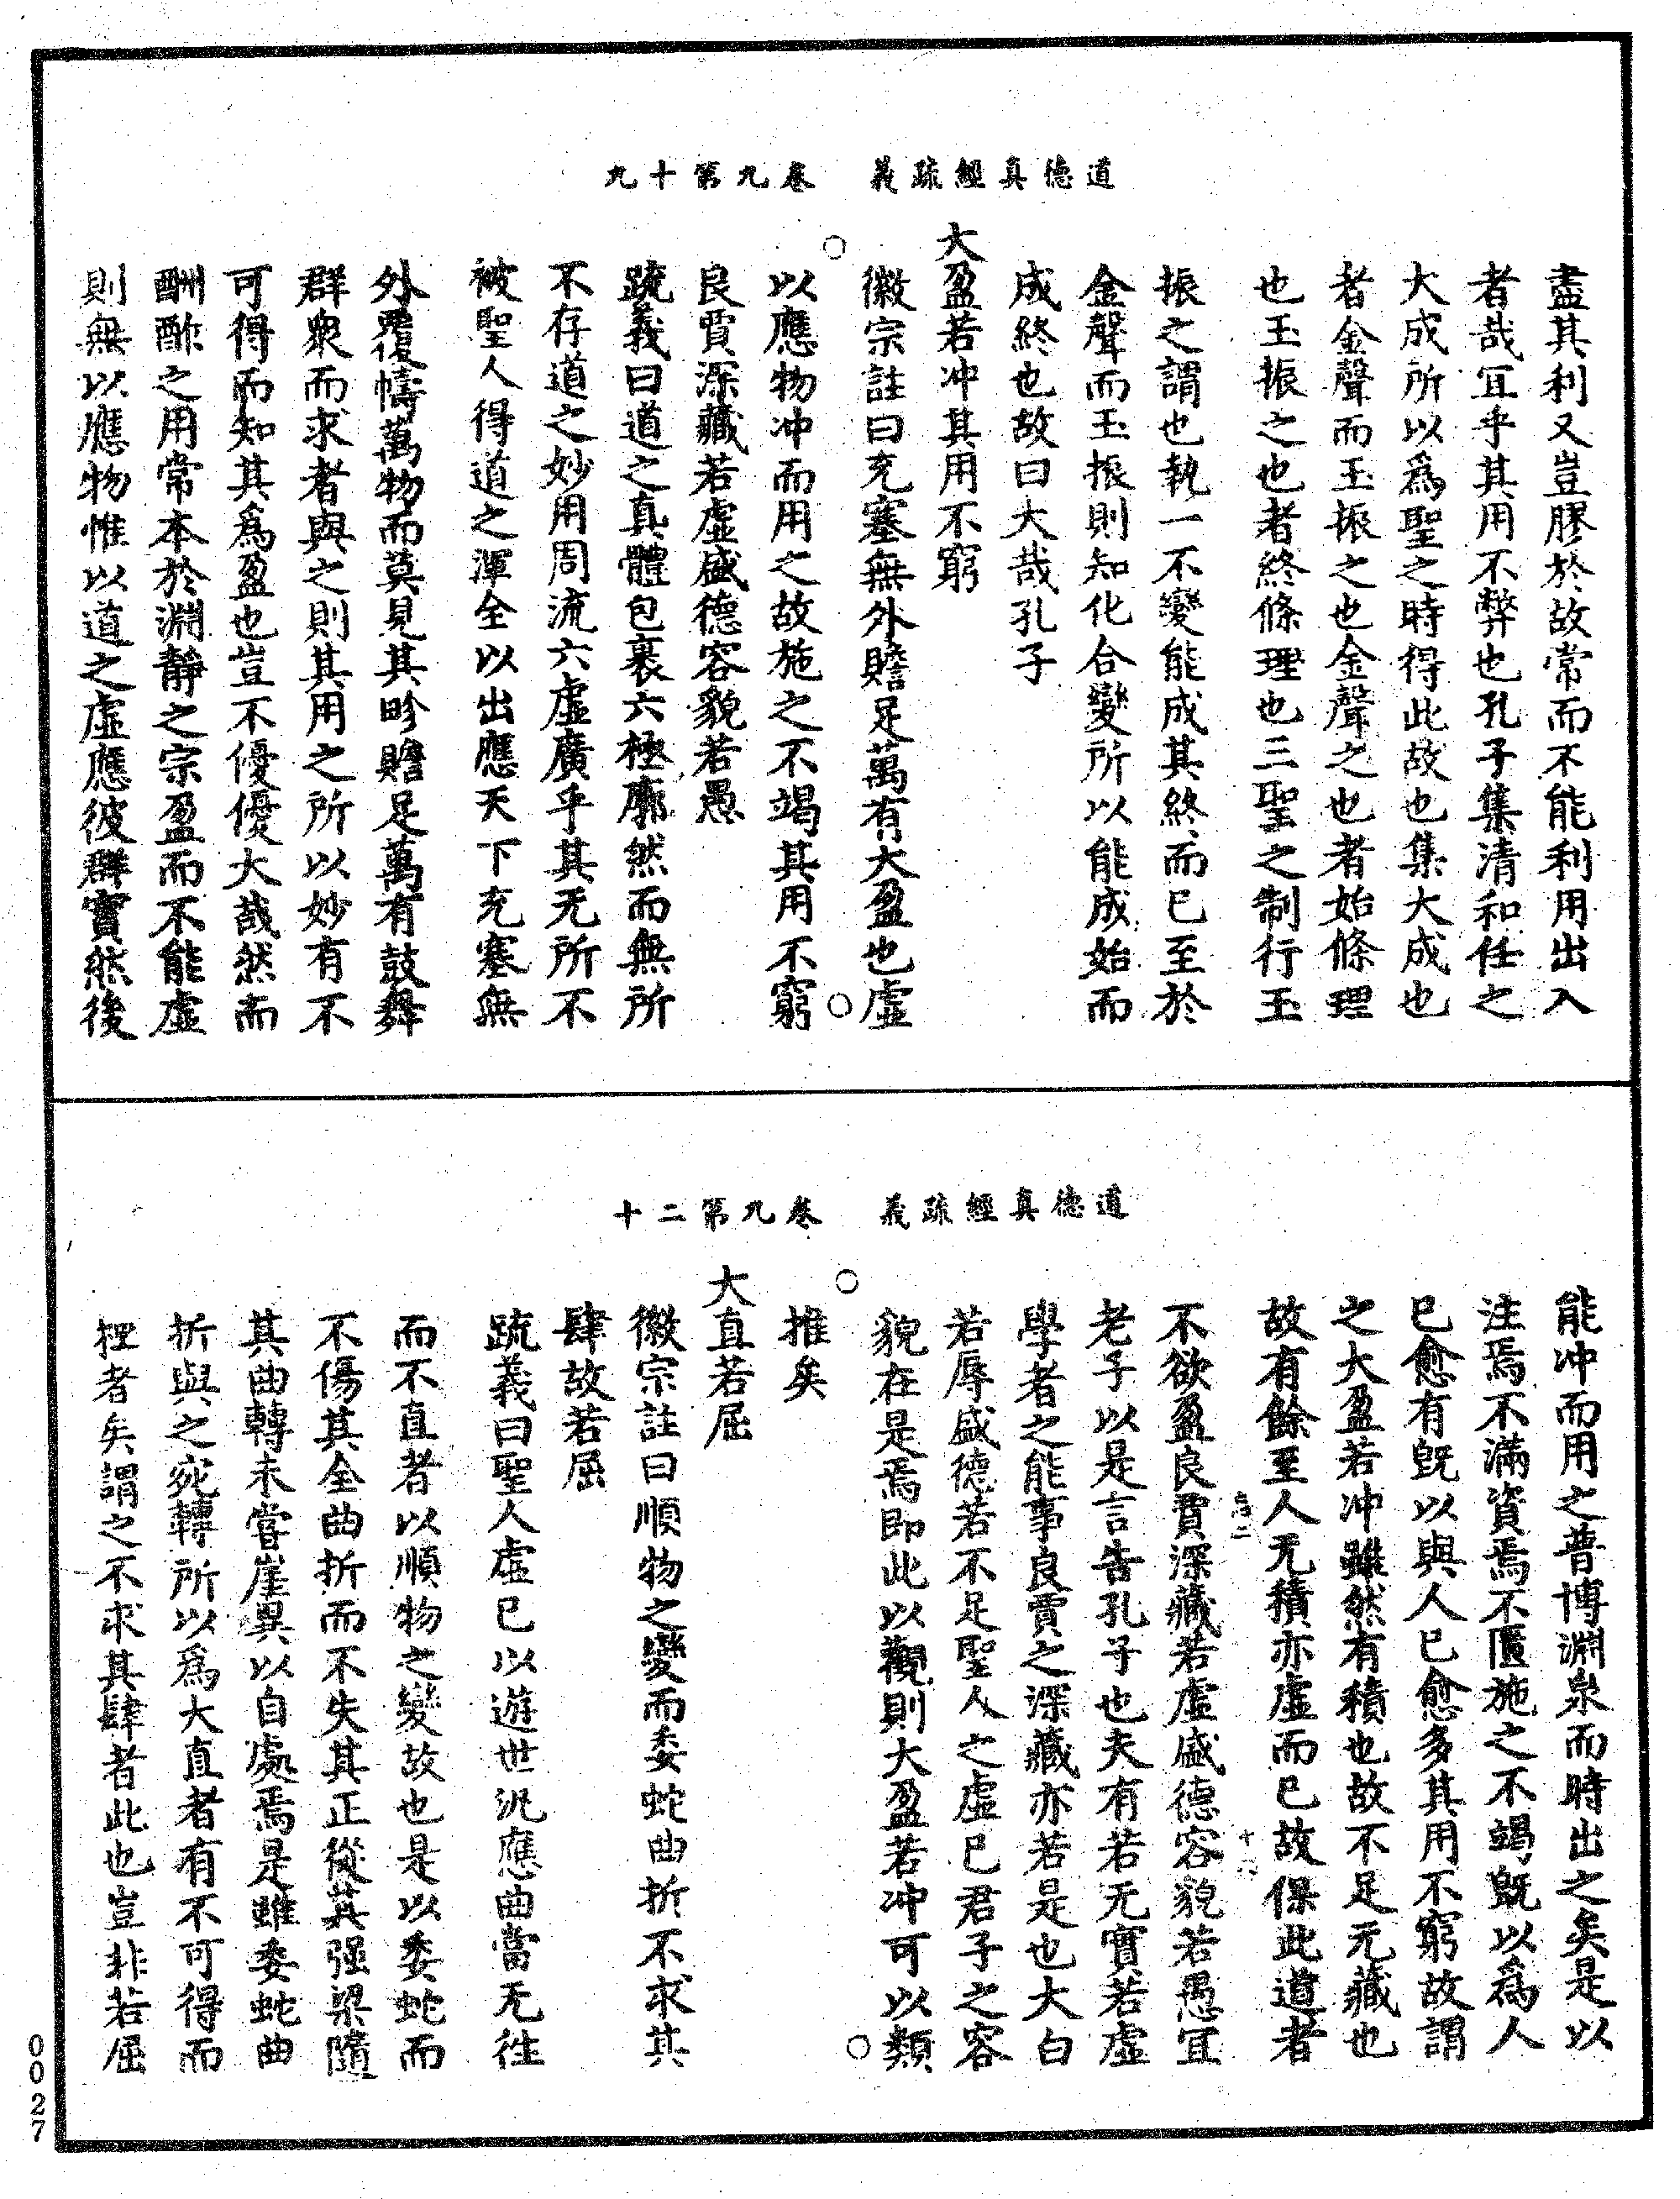 道德真經疏義　卷九第十九
盡其利又豈膠於故常而不能利用出入
者哉冝乎其用不弊也孔子集清和任之
大成所以爲聖之時得此故也集大成也
者金聲而玉振之也金聲之也者始條理
也玉振之也者終條理也三聖之制行玉
振之謂也執一不變能成其終而已至於
金聲而玉振則知化合變所以能成始而
成終也故曰大哉孔子
大盈若冲其用不窮
徽宗註曰充塞無外贍足萬有大盈也虛
以應物冲而用之故施之不竭其用不窮
良賈深藏若虛盛德容貌若愚
疏義曰道之真體包裹六極廓然而無所
不存道之妙用周流六虛廣乎其无所不
被聖人得道之渾全以出應天下充塞無
外覆幬萬物而莫見其畛贍足萬有鼓舞
群衆而求者與之則其用之所以妙有不
可得而知其爲盈也豈不優優大哉然而
酬酢之用常本於淵靜之宗盈而不能虛
則無以應物惟以道之虛應彼群實然後
道德真經疏義　卷九第二十
能冲而用之普博淵泉而時出之矣是以
注焉不滿資焉不匱施之不竭旣以爲人
已愈有旣以與人已愈多其用不窮故謂
之大盈若冲雖然有積也故不足无藏也
故有餘至人无積亦虛而已故保此道者
不欲盈良賈深藏若虛盛德容貌若愚冝
老子以是言告孔子也夫有若无實若虛
學者之能事良賈之深藏亦若是也大白
若辱盛德若不足聖人之虛已君子之容
貌在是焉即此以觀則大盈若冲可以類
推矣
大直若屈
徽宗註曰順物之變而委蛇曲折不求其
肆故若屈
疏義曰聖人虛已以遊世汎應曲當无徃
而不直者以順物之變故也是以委蛇而
不傷其全曲折而不失其正從其强梁隨
其曲轉未嘗崖異以自處焉是雖委蛇曲
折與之宛轉所以爲大直者有不可得而
枉者矣謂之不求其肆者此也豈非若屈
0027